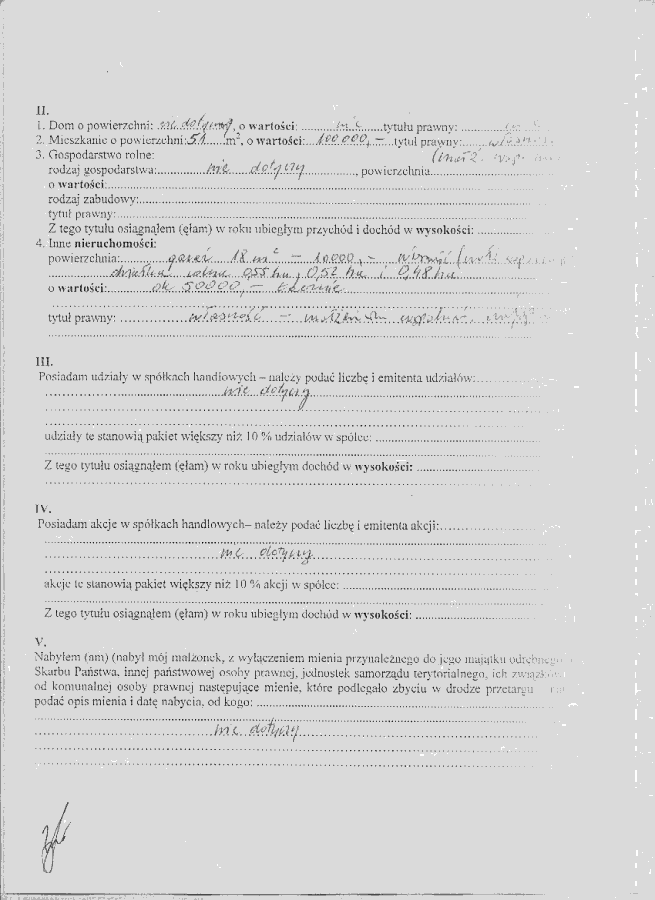 II.
1. Dom o powierzchni: nie dotyczy, o wartości: ..........nie......tytułu prawny: ................
2. Mieszkanie o powierzchni:51......m², o wartości:...100 000,-..tytuł prawny:...
3. Gospodarstwo rolne:
rodzaj gospodarstwa:..............nie dotyczy.............., powierzchnia......................
o wartości:..............................................................
rodzaj zabudowy:..............................................................
tytuł prawny:..............................................................
Z tego tytułu osiągnąłem (ęłam) w roku ubiegłym przychód i dochód w wysokości: ....................
4. Inne nieruchomości:
powierzchnia:............garaż 18 m² – 10000,-
działka 0,55 ha, 0,52 ha i 0,48 ha
o wartości:..........ok 50000,- łącznie
tytuł prawny: ...............własność –
III.
Posiadam udziały w spółkach handlowych – należy podać liczbę i emitenta udziałów:...............
nie dotyczy
udziały te stanowią pakiet większy niż 10 % udziałów w spółce: ........................................
Z tego tytułu osiągnąłem (ęłam) w roku ubiegłym dochód w wysokości: ..............................
IV.
Posiadam akcje w spółkach handlowych– należy podać liczbę i emitenta akcji:....................
nie dotyczy
akcje te stanowią pakiet większy niż 10 % akcji w spółce: ........................................
Z tego tytułu osiągnąłem (ęłam) w roku ubiegłym dochód w wysokości: ..............................
V.
Nabyłem (am) (nabył mój małżonek, z wyłączeniem mienia przynależnego do jego majątku odrębnego
Skarbu Państwa, innej państwowej osoby prawnej, jednostek samorządu terytorialnego, ich
od komunalnej osoby prawnej następujące mienie, które podlegało zbyciu w drodze przetargu
podać opis mienia i datę nabycia, od kogo: ..............................................................
nie dotyczy